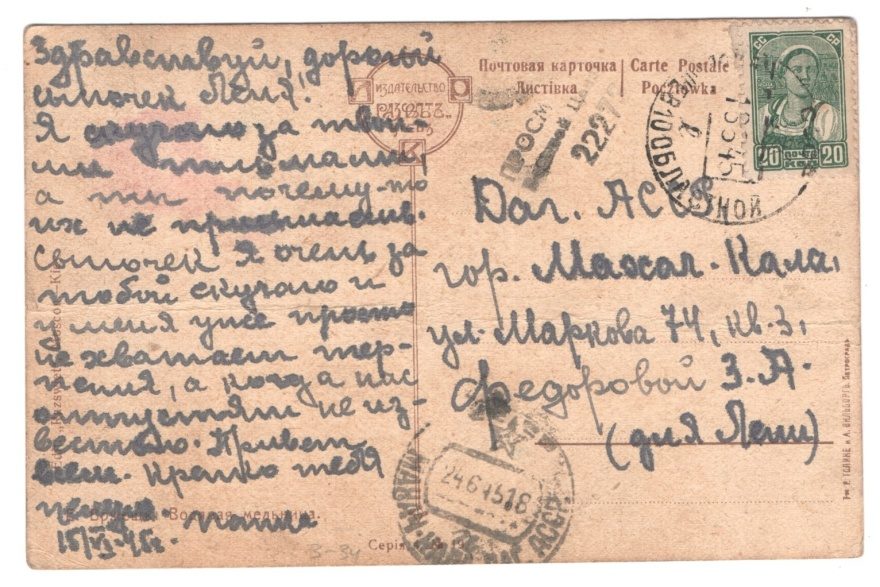 Здравствуй, дорогой
сыночек Леня!
Я скучаю за твои-
ми письмами,
а ты почему-то
их не присылаешь.
Сыночек я очень за
тобой скучаю и
у меня уже просто
не хватает тер-
пения, а когда нас
отпустят не из-
вестно. Привет
всем. Крепко тебя
целую папа
15/VI-45г.
ИЗДАТЕЛЬСТВО
РАССВѢТЪ
Почтовая карточка
Листівка
Carte Postale
Pocztówka
ПРОСМ
2227
СС СР
20 ПОЧТА 20
КОП
Даг. АССР
гор. Махач-Кала,
ул. Маркова 74, кв. 3,
Федоровой З. А.
(для Лени)
24.6.45 18
ДАГ. АССР
Водяная мельница.
Серія
3-34
Тип. Р. Голике и А. Вильборгъ. Петроградъ